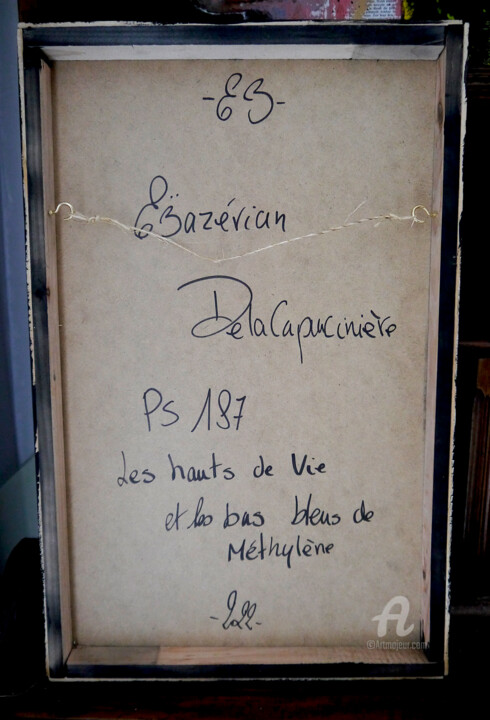 -EB-
EBazérian
DelaCapucinière
PS 187
Les hauts de Vie
et les bas bleus de
Méthylène
-222-
©Artmajeur.com